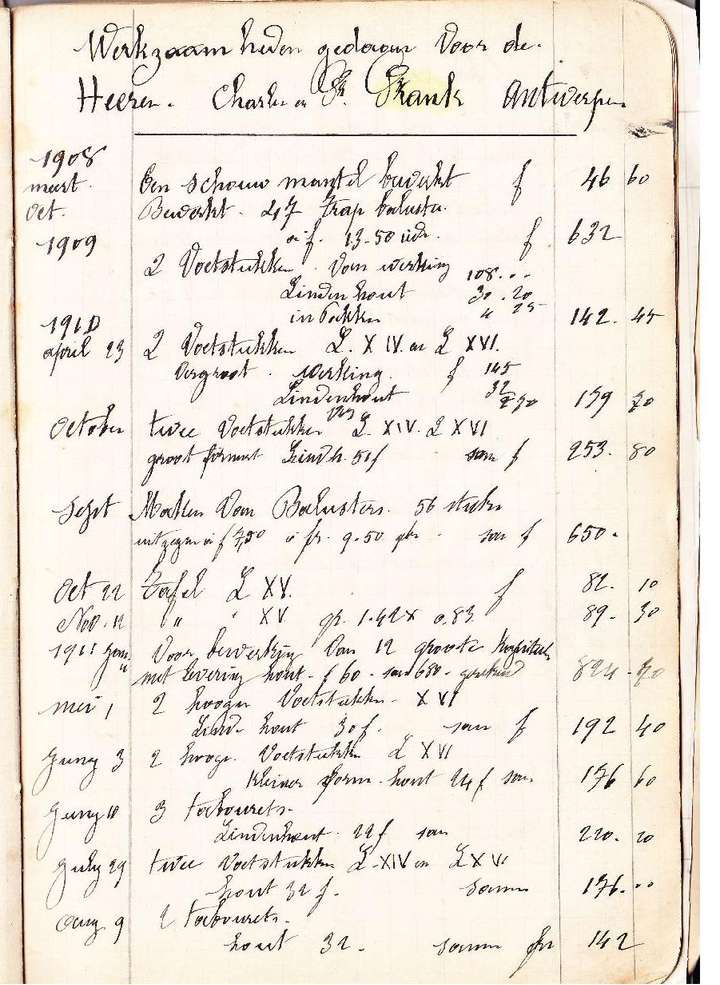 Werkzaamheden gedaan Voor de
Heeren. Charles en Frank Antwerpen
1908
meert. Een schouw mantel bewerkt f 46 60
Oct. Bewerkt. 47 Trap baluster
1909 a f. 13-50 f. 632
2 Voetstukken. Van werking 108...
Linden hout 30.20
in Pakken 4 25 142. 45
1910
april 23 2 Voetstukken L. XIV. en L XVI.
Vergroot. werking. f 145
Lindenhout 32 179 70
October twee Voetstukken L XIV. L XVI
groot formaat Lindh. 50f som f 253. 80
Sept Maken Van Balusters. 56 stuks
a f 7,50 a fr. 9.50 som f 650.
Oct 22 Tafel L XV. f 82. 10
Nov. 12 " " XV gr. 1.42 x 0.83. 89. 30
1911 Voor bewerking Van 12 groote
met Levering hout. f 60 - som 680 - 824.70
mei 1 2 hooger Voetstukken. XVI
Lind. hout 30f. som f 192 40
Juny 3 2 hooge. Voetstukken L XVI
kleiner form. hout 24f som 176 60
Juny 10 3 Tabourets.
Lindenhout. 22f som 220. 20
July 29 twee Voetstukken L-XIV en L XVI
hout 32 f. somm 176...
Aug 9 2 Tabourets.
hout 32. somm fr 142